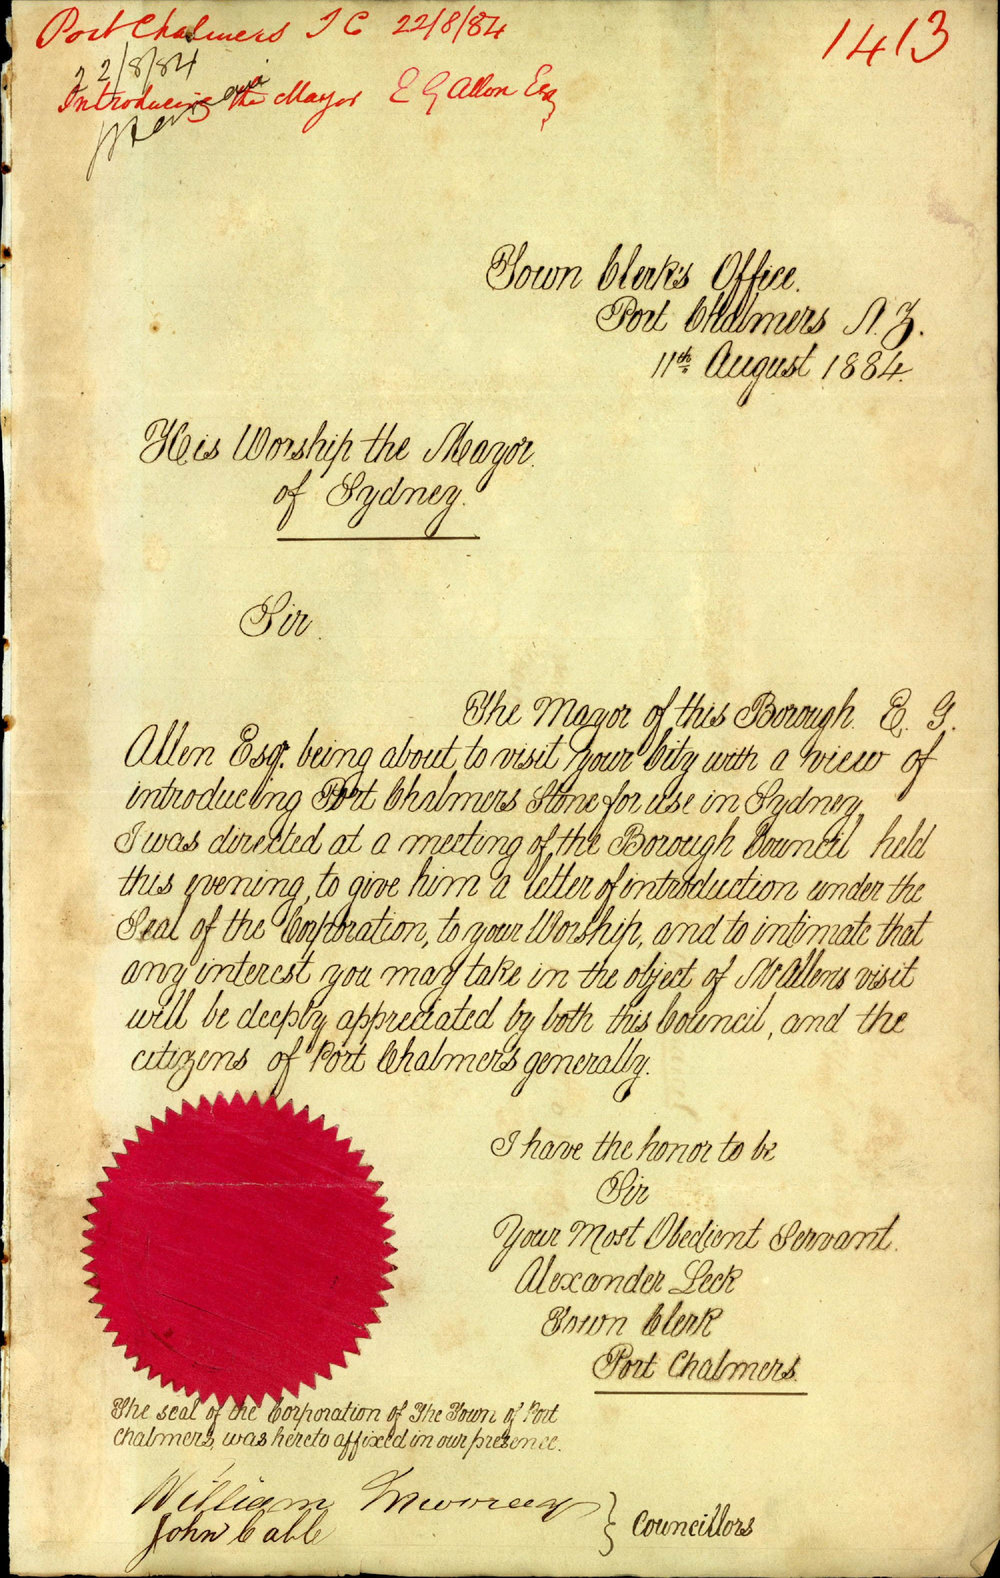 Port Chalmers T C 22/8/84
1413
22/8/84
Introducing the Mayor E G Allen Esq
Town Clerk's Office.
Port Chalmers N.Z.
11th August 1884.
His Worship the Mayor.
of Sydney.
Sir.
The Mayor of this Borough. E. G.
Allen Esqr. being about to visit your City with a view of
introducing Port Chalmers Stone for use in Sydney,
I was directed at a meeting of the Borough Council held
this evening, to give him a letter of introduction under the
Seal of the Corporation, to your Worship, and to intimate that
any interest you may take in the object of Mr Allens visit
will be deeply appreciated by both this Council, and the
citizens of Port Chalmers generally.
I have the honor to be
Sir
Your Most Obedient Servant.
Alexander Leck
Town Clerk
Port Chalmers.
The seal of the Corporation of The Town of Port
Chalmers, was hereto affixed in our presence.
William
John Cable
} Councillors